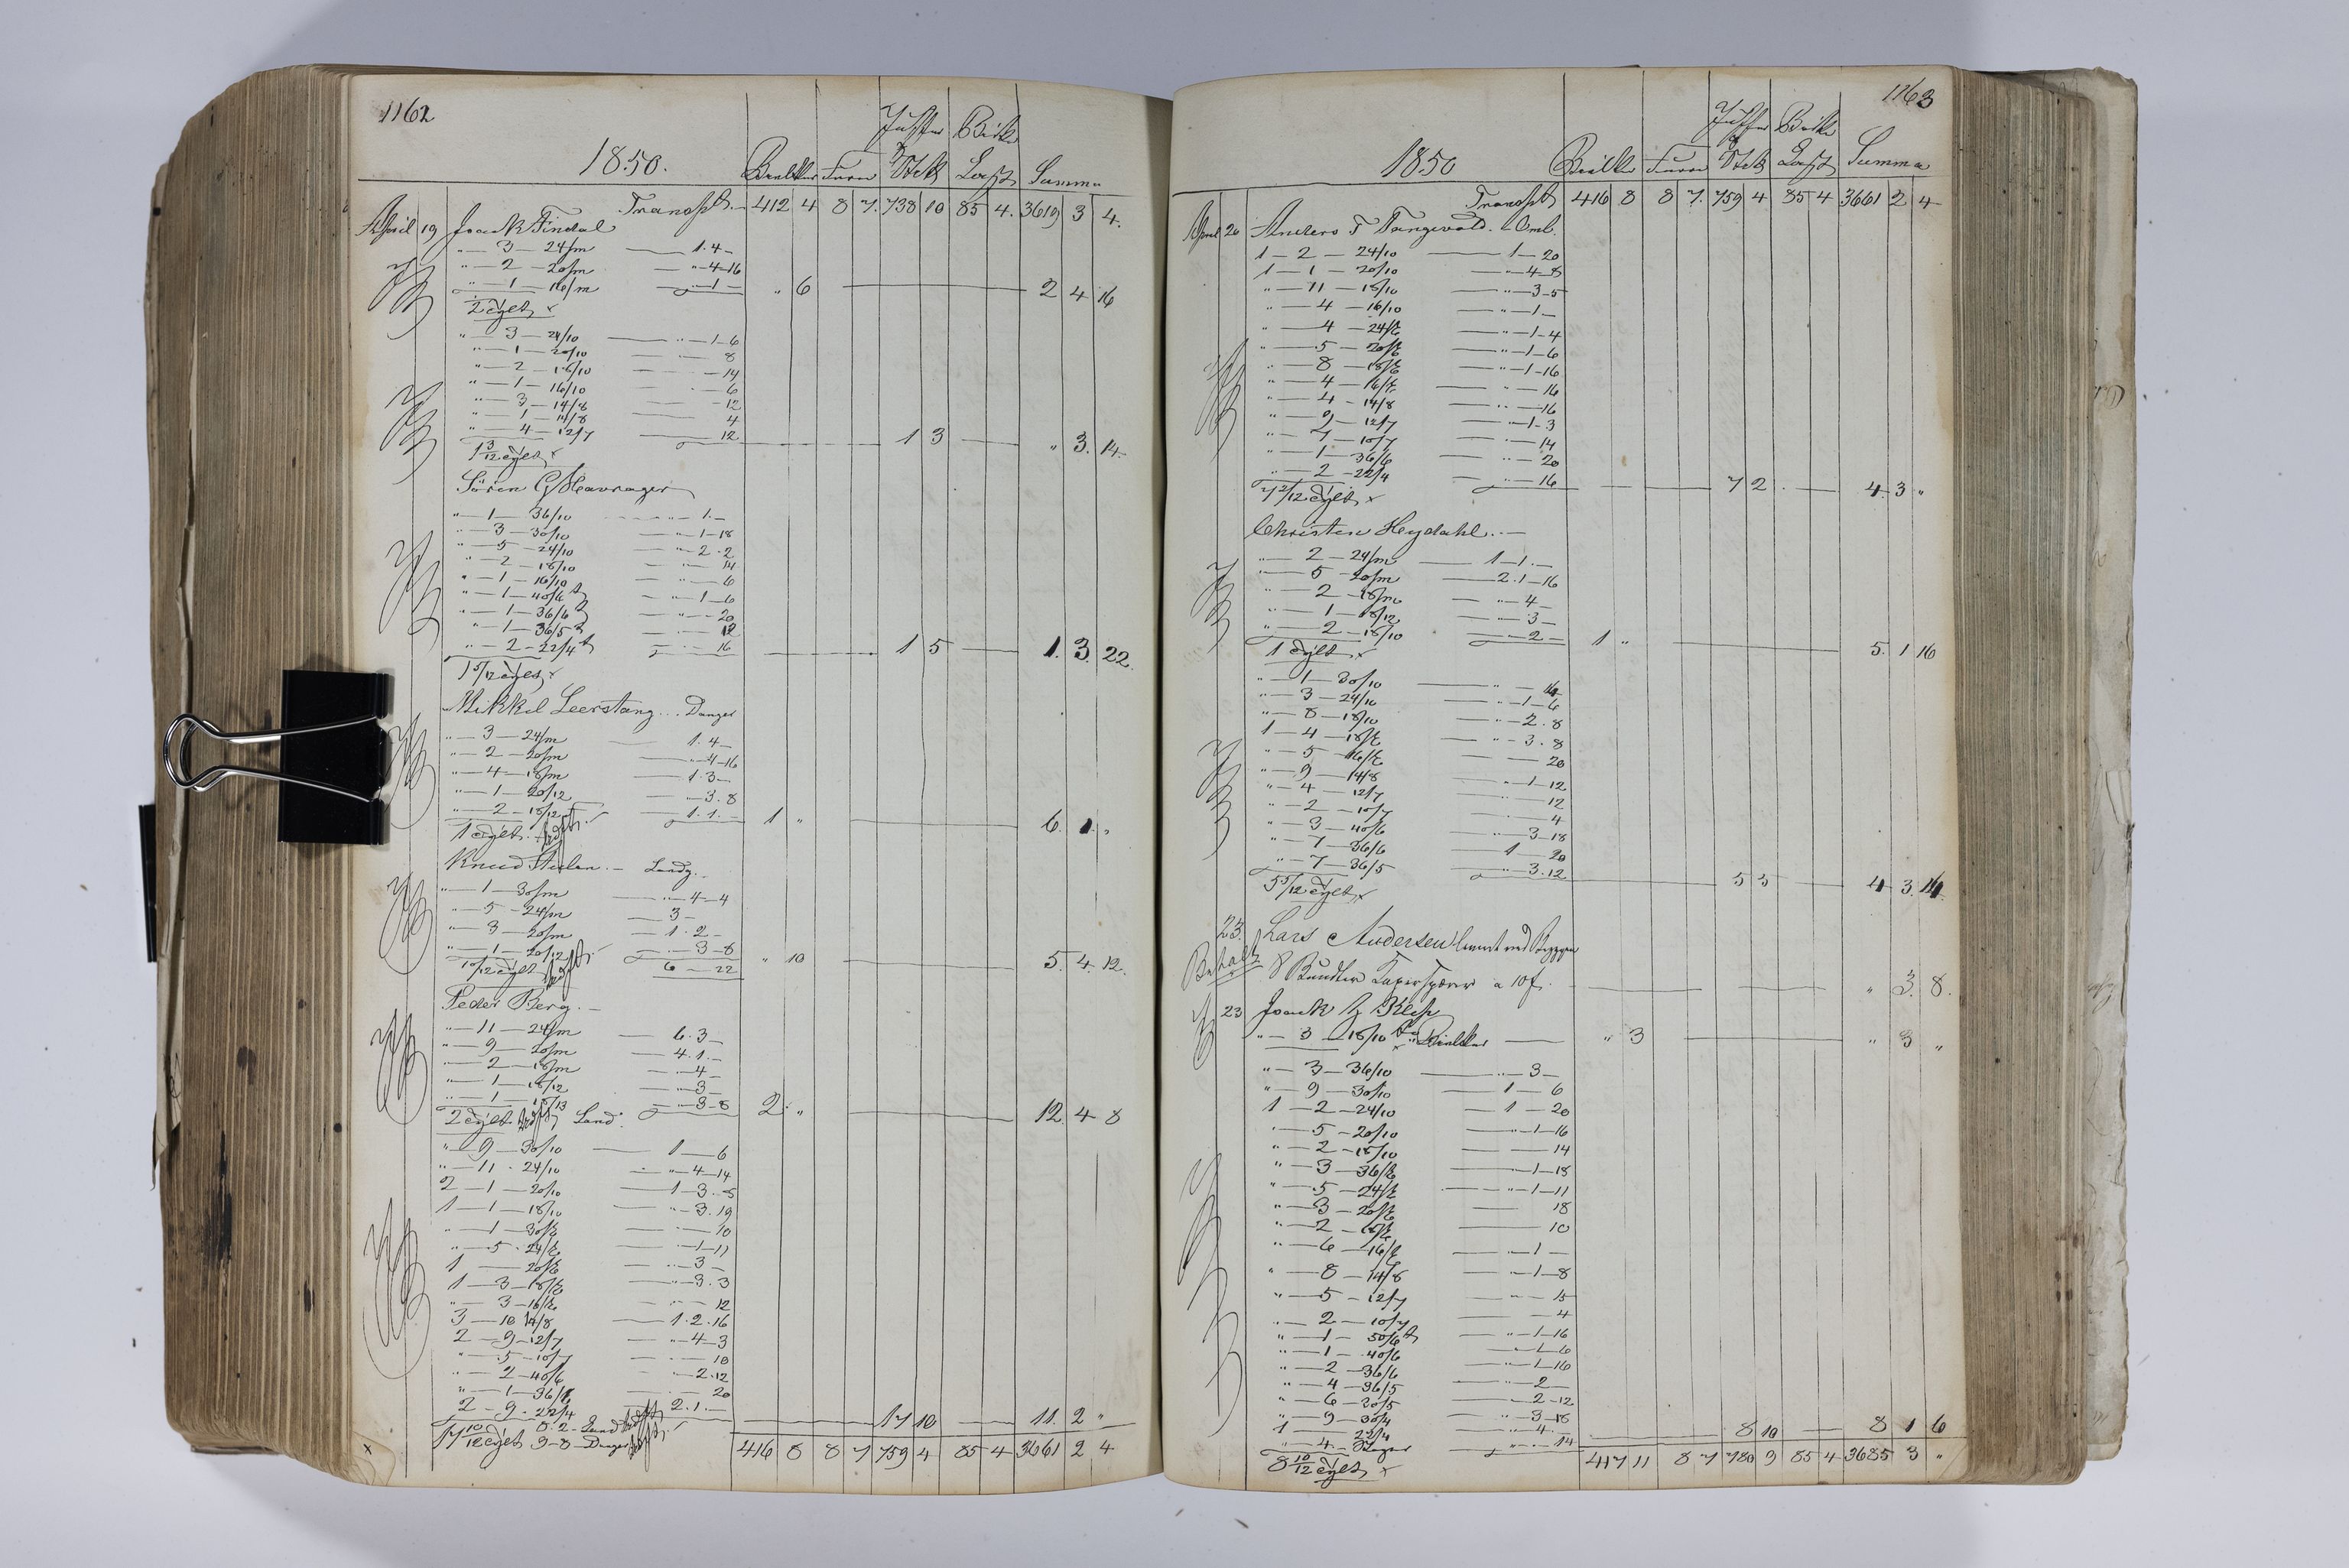 1162
1850.
Bielkker Furu Juffer Stk Birke Last Summa
Transpt. 412 4 8 7. 738 10 85 4. 3619 3 4.
April 19 Joack Findal
" — 3 — 24/m — 1. 4 —
" — 2 — 20/m — " — 4 — 16
" — 1 — 16/m — " — 1 — " 6 — 2 4 16
2 dylt x
" — 3 — 24/10 — " — 1 — 6
" — 1 — 20/10 — 8
" — 2 — 18/10 — 14
" — 1 — 16/10 — 6
" — 3 — 14/8 — 12
" — 1 — 14/8 — 4
" — 4 — 12/7 — 12 — 1 3 — " 3. 14
1 3/12 dylt x
Sören G
" — 1 — 36/10 — " — 1. —
" — 3 — 30/10 — " — 1 — 18
" — 5 — 24/10 — " — 2. 2
" — 2 — 18/10 — 14
" — 1 — 16/10 — 6
" — 1 — 40/6 — " — 1 — 6
" — 1 — 36/6 — 20
" — 1 — 36/5 — 12
" — 2 — 22/4 — 16 — 1 5 — 1. 3. 22.
1 5/12 dylt x
Mikkel Leerstang . . . Danger
" — 3 — 24/m — 1. 4 —
" — 2 — 20/m — " — 4 — 16
" — 4 — 18/m — 1. 3 —
" — 1 — 20/12 — " — 3. 8
" — 2 — 18/12 — 1. 1. — 1 " — 6. 1. "
1 dylt.
Knud — Landg.
" — 1 — 30/m — " — 4 — 4
" — 5 — 24/m — 3 —
" — 3 — 20/m — 1. 2 —
" — 1 — 20/12 — " — 3 — 8
10/12 dylt 6 — 22 " 10 — 5. 4. 12.
Peder Berg. —
" — 11 — 24/m — 6. 3 —
" — 9 — 20/m — 4. 1. —
" — 2 — 18/m — " — 4 —
" — 1 — 18/12 — " — 3 —
" — 1 — 18/13 — " — 3 — 8 2. " — 12. 4 8
2 dylt Land.
" — 9 — 30/10 — 1 — 6
" — 11 . 24/10 — " — 4 — 14
2 — 1 — 20/10 — 1 — 3. 8
1 — 1 — 18/10 — " — 3. 19
" — 1 — 30/ — 10
" — 5 . 24/ — " — 1 — 11
1 — 20/ — " — 3 —
1 — 3 — 18/ — " — 3. 3
" — 3 — 16/ — 12
3 — 10 14/8 — 1. 2. 16
2 — 9 — 12/7 — " — 4 — 3
" — 5 — 10/7 — 10
" — 2 — 40/6 — " — 2. 12
" — 1 — 36/6 — 20
2 — 9 . 22/4 — 2. 1. — 17 10 — 11. 2 "
17 10/12 dylt 8. 2 — Land
9 — 8 — Danger
416 8 8 7 759 4 85 4 3661 2 4
1163
1850
Bielkker Furu Juffer Stk Birke Last Summa
Transpt 416 8 8 7. 759 4 85 4 3661 2 4
April 20 Anders T Tangevald.
1 — 2 — 24/10 — 1 — 20
1 — 1 — 20/10 — " — 4 — 8
" — 11 — 18/10 — " — 3 — 5
" — 4 — 16/10 — " — 1 —
" — 4 — 24/ — " — 1 — 4
" — 5 — 20/ — " — 1 — 6
" — 8 — 18/ — " — 1 — 16
" — 4 — 16/ — " — 16
" — 4 — 14/8 — " — 16
" — 9 — 12/7 — " — 1 — 3
" — 7 — 10/7 — 14
" — 1 — 36/6 — 20
" — 2 — 22/4 — 16 — 7 2 — 4. 3 "
7 2/12 dylt x
Christen Heydahl. . —
" — 2 — 24/m — 1 — 1. —
" — 5 — 20/m — 2. 1 — 16
" — 2 — 18/m — " — 4 —
" — 1 — 18/12 — " — 3 —
" — 2 — 18/10 — 2 — 1 " — 5. 1 16
1 dylt x
" — 1 — 30/10 — 14
" — 3 — 24/10 — " — 1 — 6
" — 8 — 18/10 — " — 2. 8
1 — 4 — 18/ — " — 3. 8
" — 5 — 16/ — 20
" — 9 — 14/8 — " — 1 — 12
" — 4 — 12/7 — 12
" — 2 — 10/7 — 4
" — 3 — 40/6 — " — 3 — 18
" — 7 — 36/6 — 1 — 20
" — 7 — 36/5 — " — 3. 12 — 5 5 — 4 3. 14.
5 5/12 dylt x
23. Lars Andersen
Betalt 8 Bundter a 10f. — " 3. 8.
23 Joack Klep
" — 3 — 18/10 Bielkker — " 3 — " 3 "
" — 3 — 36/10 — " — 3 —
" — 9 — 30/10 — 1 — 6
1 — 2 — 24/10 — 1 — 20
" — 5 — 20/10 — " — 1 — 16
" — 2 — 18/10 — 14
" — 3 — 36/ — " — 1 — 18
" — 5 — 24/ — " — 1 — 11
" — 3 — 20/ — 18
" — 2 — 18/ — 10
" — 6 — 16/ — " — 1 —
" — 8 — 14/8 — " — 1 — 8
" — 5 — 12/7 — 15
" — 2 — 10/7 — 4
" — 1 — 50/6 — " — 1 — 16
" — 1 — 40/6 — " — 1 — 6
" — 2 — 36/6 — " — 1 — 16
" — 4 — 36/5 — " — 2 —
" — 6 — 30/5 — " — 2 — 12
" — 9 — 30/4 — " — 3 — 18
1 — 22/4 — " — 4. —
" — 4 — — 14 — 8 10 — 8 1 6
8 10/12 dylt x
417 11 8 7 780 9 85 4 3685 3 "